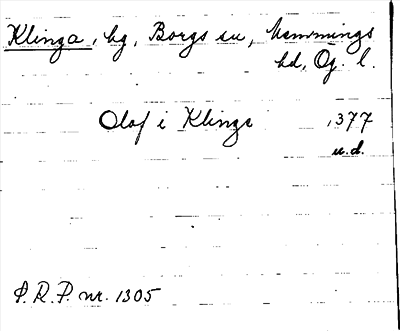 Klinga, by, Borgs sn, Memmings
hd, Ög. l.
Olof i Klinge 1377
u.d.
P.R.P. nr. 1305